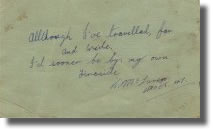 Allthough I've travelled, far
and wide,
I'd sooner be by my own
fireside